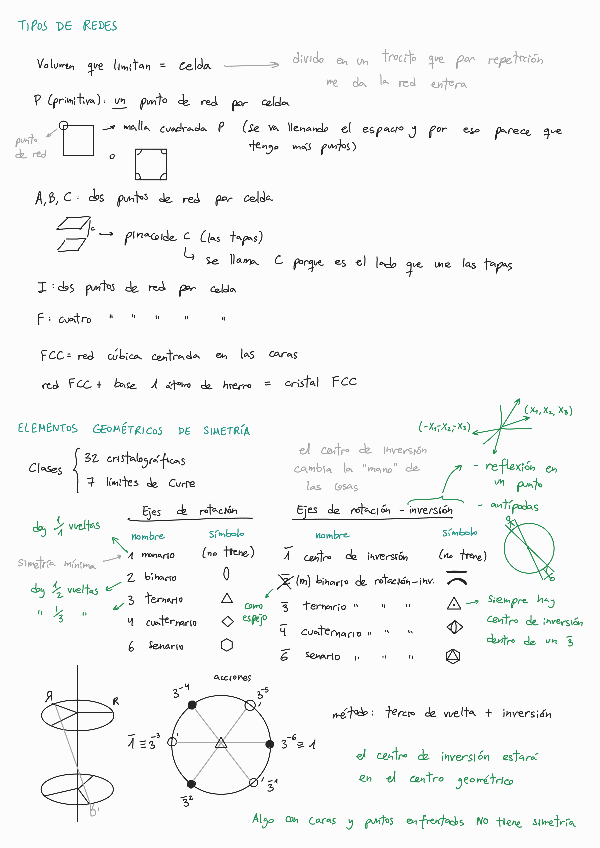 TIPOS DE REDES
Volumen que limitan = celda → divido en un trocito que por repetición
me da la red entera
P (primitiva): un punto de red por celda
punto
de red
→ malla cuadrada P (se va llenando el espacio y por eso parece que
tengo más puntos)
o
A, B, C: dos puntos de red por celda
c
→ pinacoide C (las tapas)
↳ se llama C porque es el lado que une las tapas
I: dos puntos de red por celda
F: cuatro " " " " "
FCC = red cúbica centrada en las caras
red FCC + base 1 átomo de hierro = cristal FCC
ELEMENTOS GEOMÉTRICOS DE SIMETRÍA
(x₁, x₂, x₃)
(-x₁, -x₂, -x₃)
Clases { 32 cristalográficas
7 límites de Curie
el centro de inversión
cambia la "mano" de
las cosas
- reflexión en
un punto
- antípodas
Ejes de rotación
nombre símbolo
doy 1/1 vueltas
simetría mínima → 1 monario (no tiene)
doy 1/2 vueltas ← 2 binario
" 1/3 " ← 3 ternario
4 cuaternario
6 senario
Ejes de rotación - inversión
nombre símbolo
1̄ centro de inversión (no tiene)
2̄ (m) binario de rotación-inv.
como
espejo
3̄ ternario " " "
4̄ cuaternario " " "
6̄ senario " " "
→ siempre hay
centro de inversión
dentro de un 3̄
R R
acciones
3̄⁻⁴ 3̄⁻⁵
1̄ ≡ 3̄⁻³ 3̄⁻⁶ ≡ 1
3̄² 3̄¹
método: tercio de vuelta + inversión
el centro de inversión estará
en el centro geométrico
Algo con caras y puntos enfrentados NO tiene simetría